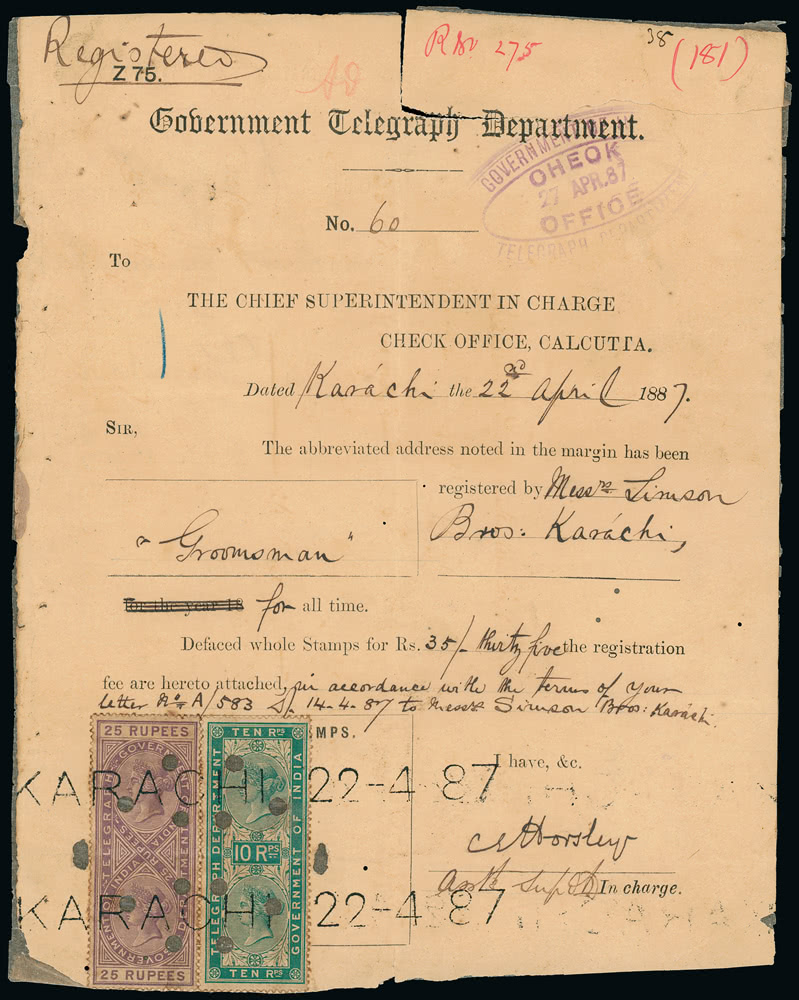 Registered
Z 75.
275
38
(181)
Government Telegraph Department.
GOVERNMENT
CHECK
27 APR.87
OFFICE
TELEGRAPH DEPARTMENT
No. 60
To
THE CHIEF SUPERINTENDENT IN CHARGE
CHECK OFFICE, CALCUTTA.
Dated Karáchi the 22nd April 1887.
SIR,
The abbreviated address noted in the margin has been
registered by Messrs Simson
Bros: Karáchi,
"Groomsman"
for the year 18 for all time.
Defaced whole Stamps for Rs. 35/- thirty five the registration
fee are hereto attached, in accordance with the terms of your
letter No A/583 14-4-87 to Messrs Simson Bros: Karachi
MPS.
I have, &c.
25 RUPEES
GOVERNMENT OF INDIA
TELEGRAPH DEPARTMENT
25 RUPEES
TEN RPS
TELEGRAPH DEPARTMENT
GOVERNMENT OF INDIA
10 RPS
TEN RPS
KARACHI 22-4 87
KARACHI 22-4 87
Horsley
Asst Supdt In charge.